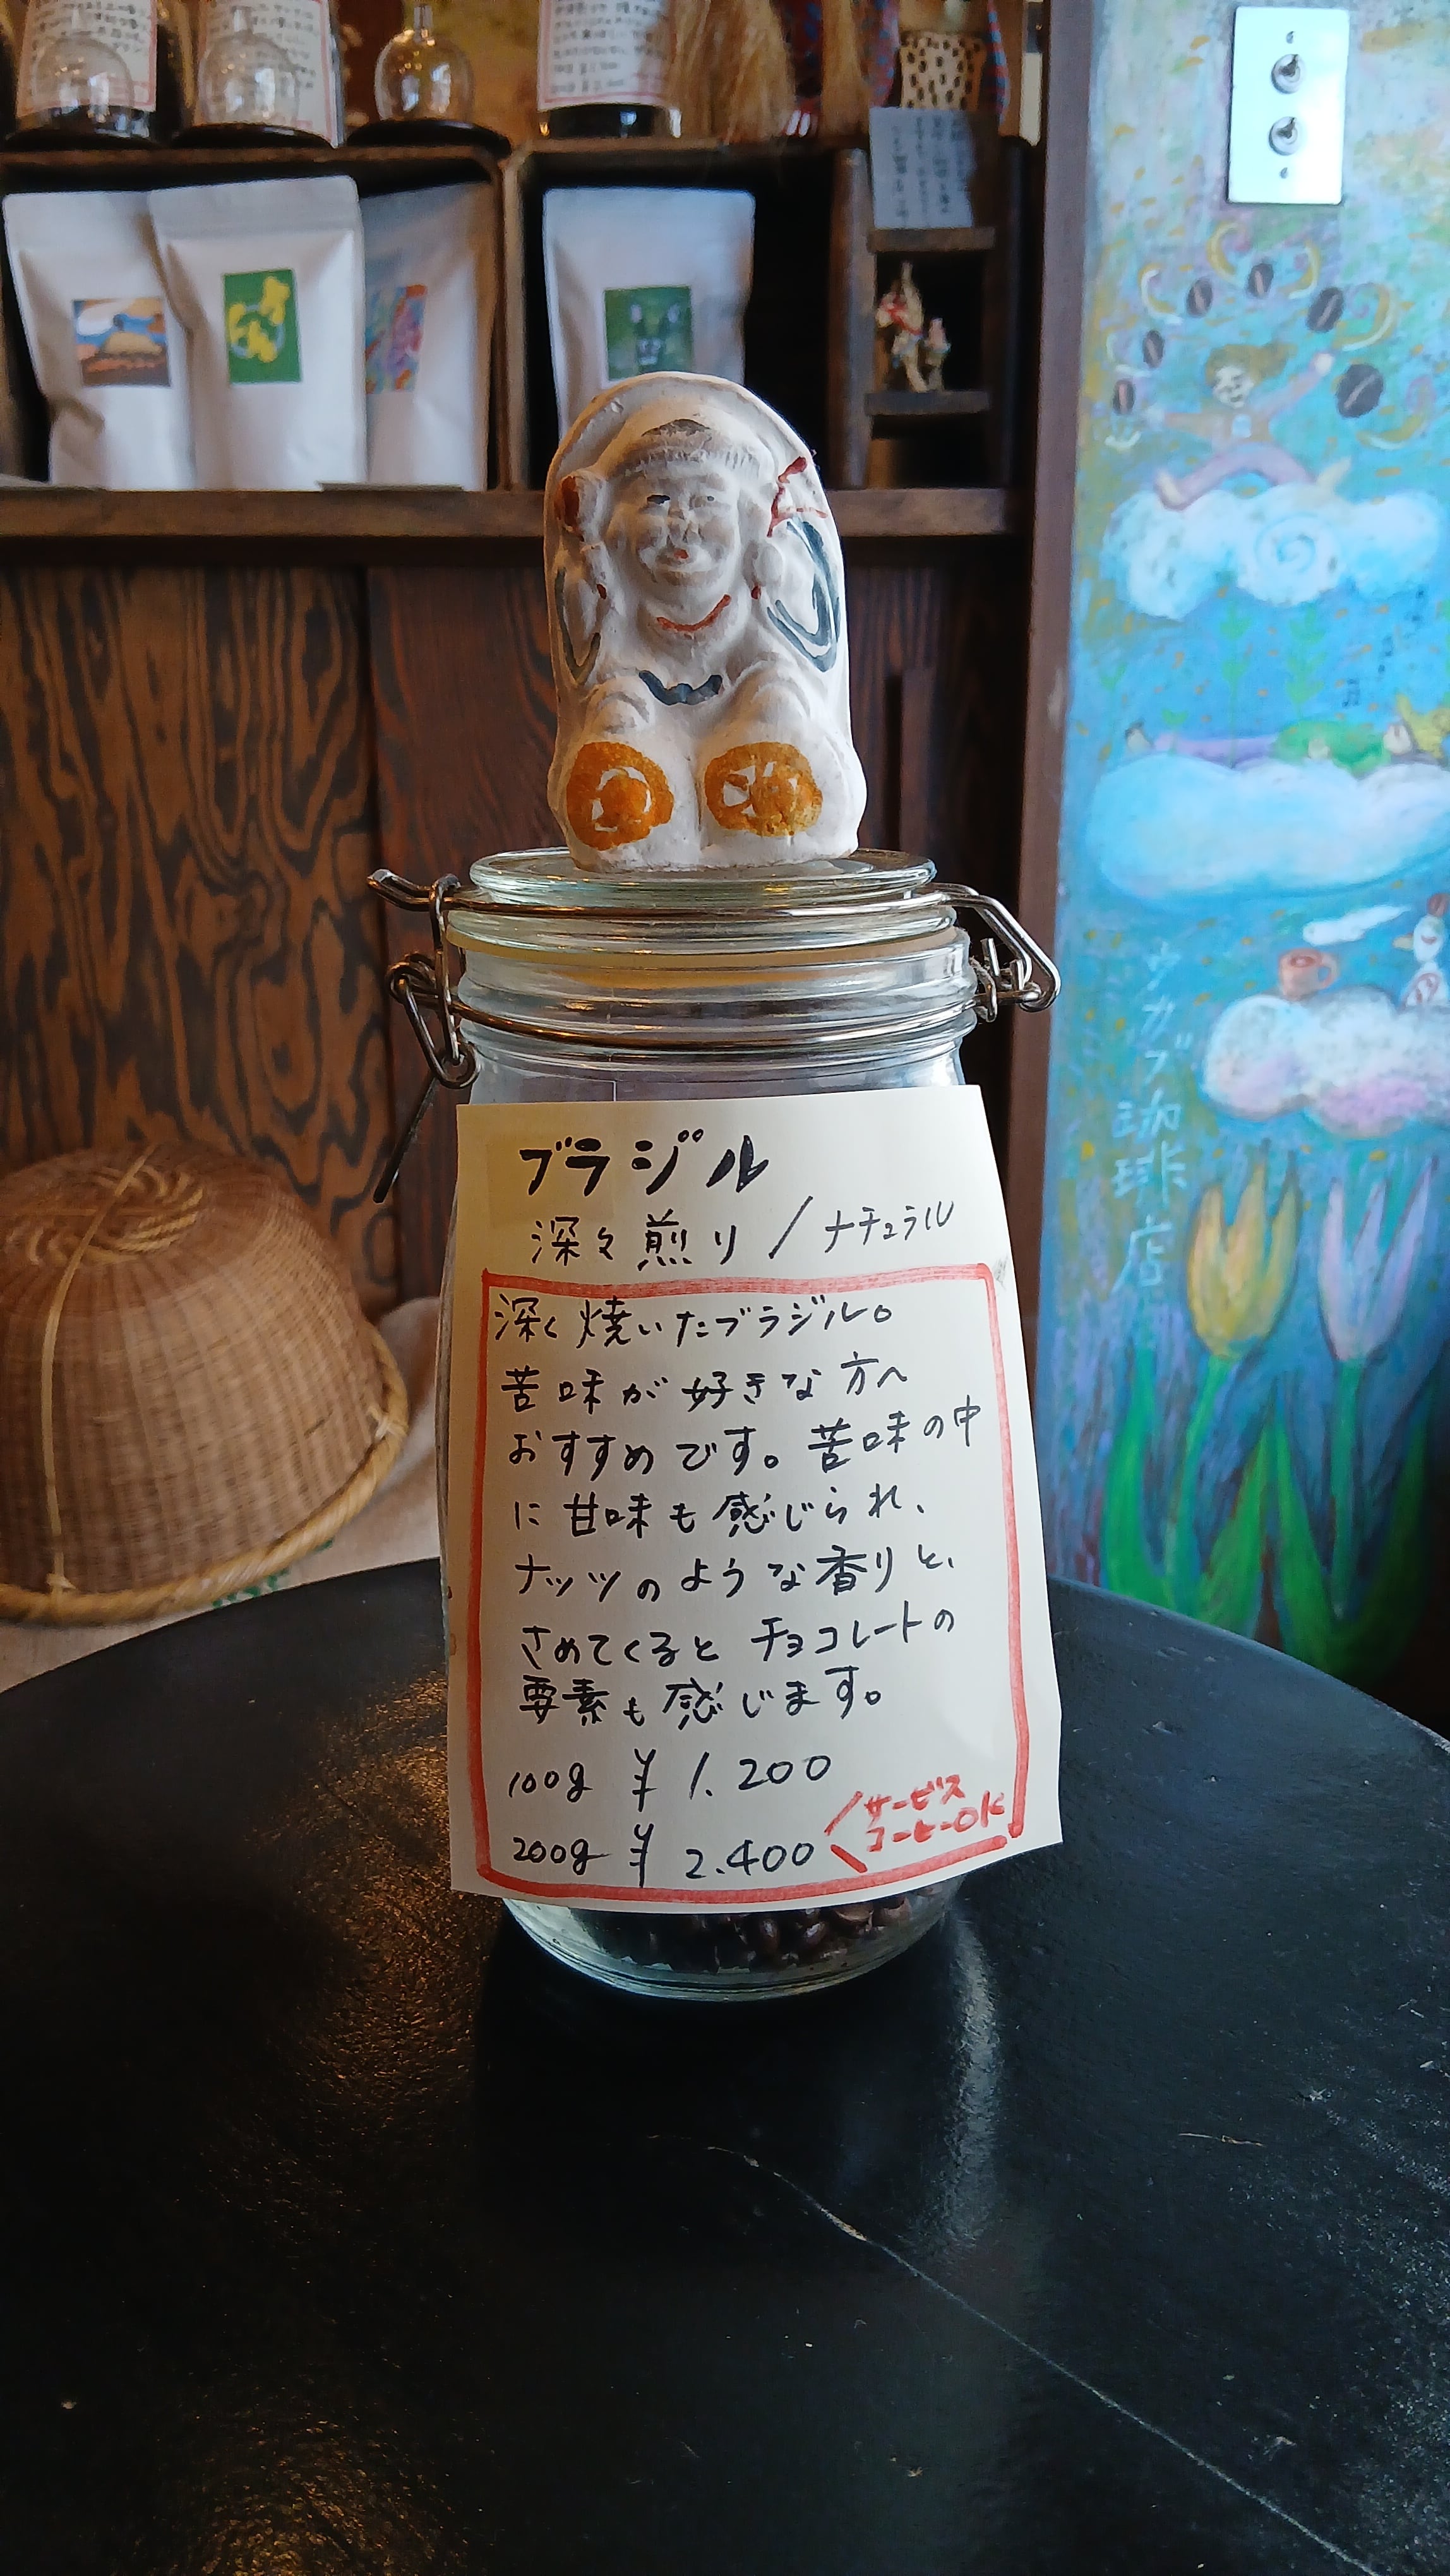 ブラジル
深々煎り / ナチュラル
深く焼いたブラジル。
苦味が好きな方へ
おすすめです。苦味の中
に甘味も感じられ、
ナッツのような香りと、
さめてくるとチョコレートの
要素も感じます。
100g ¥1.200
200g ¥2.400
サービス
コーヒーOK
カブ珈琲店